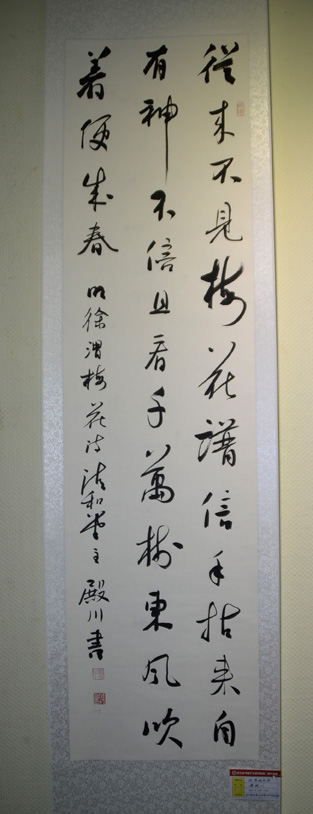 從来不見梅花譜信手拈来自
有神不信且看千萬树東風吹
着便成春 明徐渭梅花诗 清和堂主 殿川書